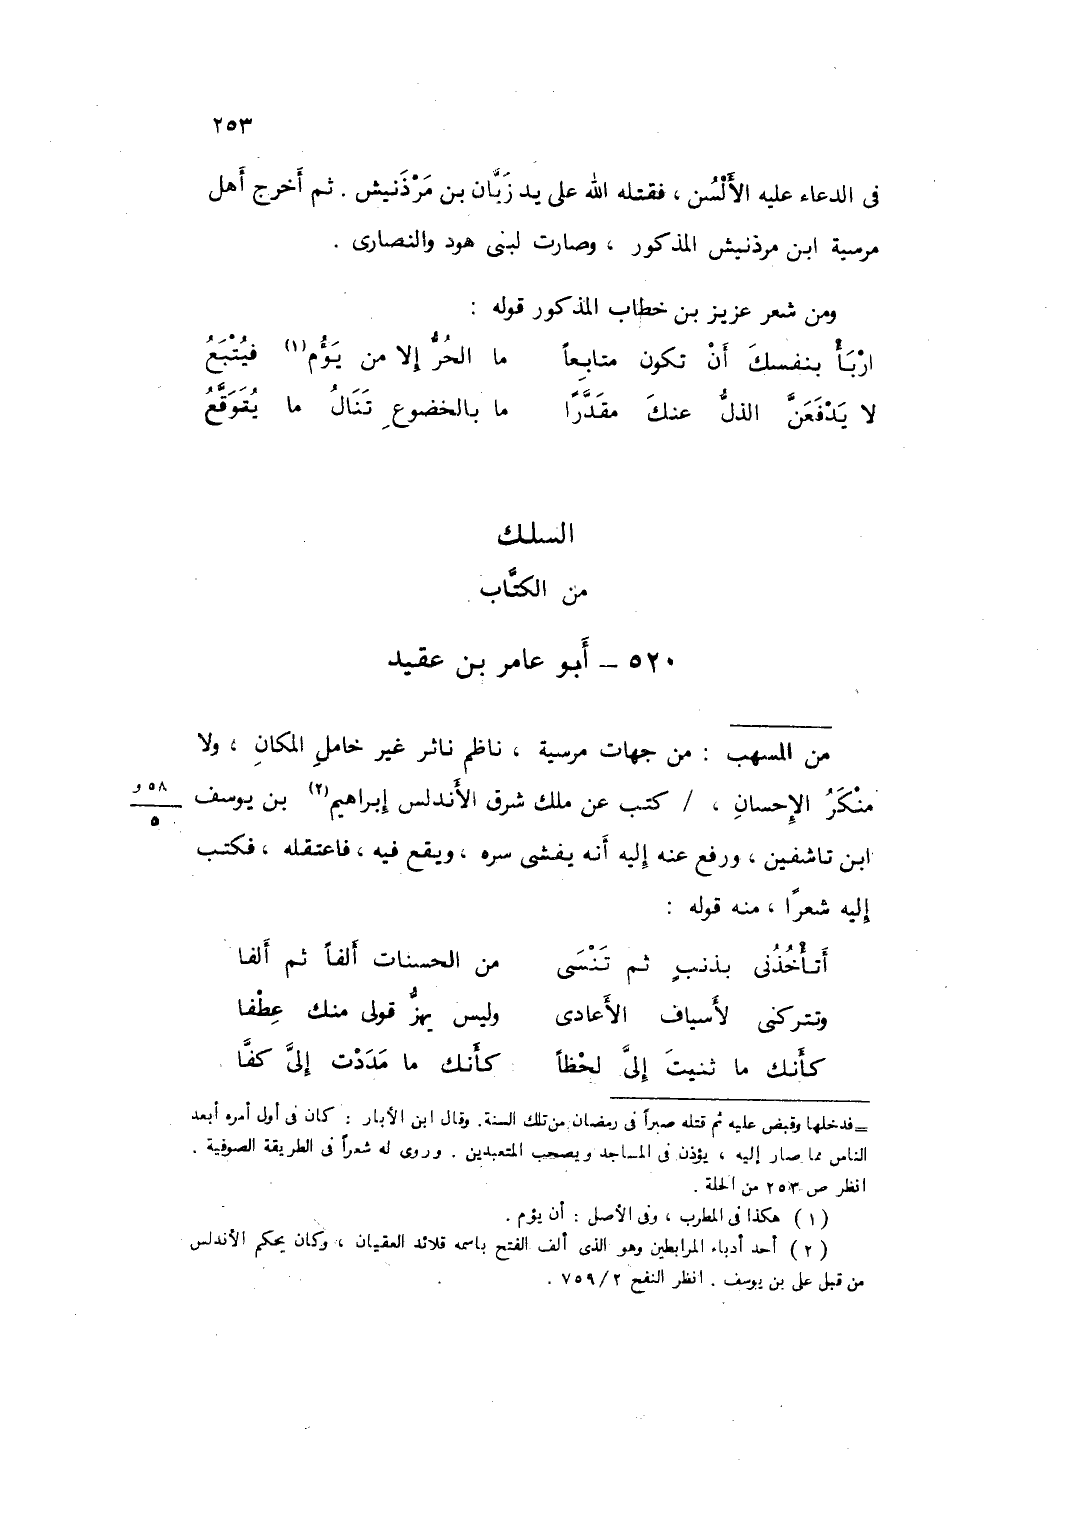 ٢٥٣
فى الدعاء عليه الأَلْسُن ، فقتله الله على يد زَبَّان بن مَرْدَنيش . ثم أَخرج أَهل
مرسية ابن مرذنيش المذكور ، وصارت لبنى هود والنصارى .
ومن شعر عزيز بن خطاب المذكور قوله :
ارْبَأْ بنفسكَ أَنْ تكون متابِعاً ما الحُرُّ إِلا من يَؤُم(١) فيُتْبَعُ
لا يَدْفَعَنَّ الذلُّ عنكَ مقَدَّرًا ما بالخضوعِ تَنَالُ ما يُتَوَقَّعُ
السلك
من الكتَّاب
٥٢٠ – أَبو عامر بن عقيد
من المسهب : من جهات مرسية ، ناظم ناثر غير خاملِ المكانِ ، ولا
منْكَرُ الإِحسانِ ، / كتب عن ملك شرق الأَندلس إِبراهيم(٢) بن يوسف
٥٨ و
٥
ابن تاشفين ، ورفع عنه إِليه أَنه يفشى سره ، ويقع فيه ، فاعتقله ، فكتب
إِليه شعرًا ، منه قوله :
أَتأْخُذُنى بذنبٍ ثم تَنْسَى من الحسنات أَلفاً ثم أَلفا
وتتركنى لأَسياف الأَعادى وليس يهزُّ قولى منك عِطْفا
كأَنك ما ثنيتَ إِلىَّ لحْظاً كأَنك ما مَدَدْت إِلىَّ كفَّا
= فدخلها وقبض عليه ثم قتله صبراً فى رمضان من تلك السنة. وقال ابن الأبار : كان فى أول أمره أبعد
الناس مما صار إليه ، يؤذن فى المساجد ويصحب المتعبدين . وروى له شعراً فى الطريقة الصوفية .
انظر ص ٢٥٣ من الحلة .
( ١ ) هكذا فى المطرب ، وفى الأصل : أن يؤم .
( ٢ ) أحد أدباء المرابطين وهو الذى ألف الفتح باسمه قلائد العقيان ، وكان يحكم الأندلس
من قبل على بن يوسف . انظر النفح ٢/٧٥٩ .